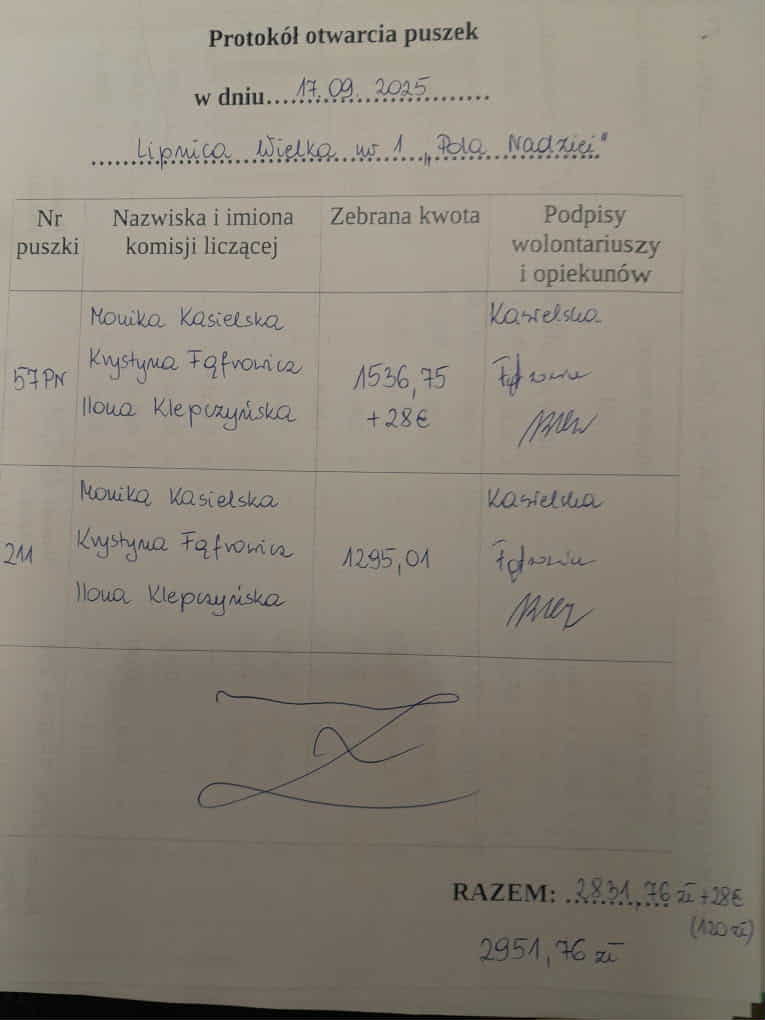 Protokół otwarcia puszek
w dniu...17.09.2025...
Lipnica Wielka nr 1 „Pola Nadziei"
Nr puszki
Nazwiska i imiona komisji liczącej
Zebrana kwota
Podpisy wolontariuszy i opiekunów
Monika Kasielska
Krystyna Fąfrowicz
Ilona Klepczyńska
57PN
1536,75
+28€
Kasielska
Monika Kasielska
Krystyna Fąfrowicz
Ilona Klepczyńska
211
1295,01
Kasielska
RAZEM: 2831,76 zł +28€
(120 zł)
2951,76 zł